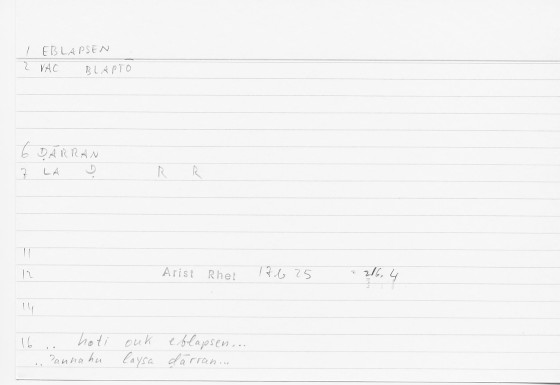 1 EBLAPSEN
2 VAC BLAPTŌ
6 ḌĀRRAN
7 LA Ḍ R R
11
12 Arist Rhet 12.6 25 216.4
14
16 .. hoti ouk eblapsen...
..ʔannahu laysa ḍārran...